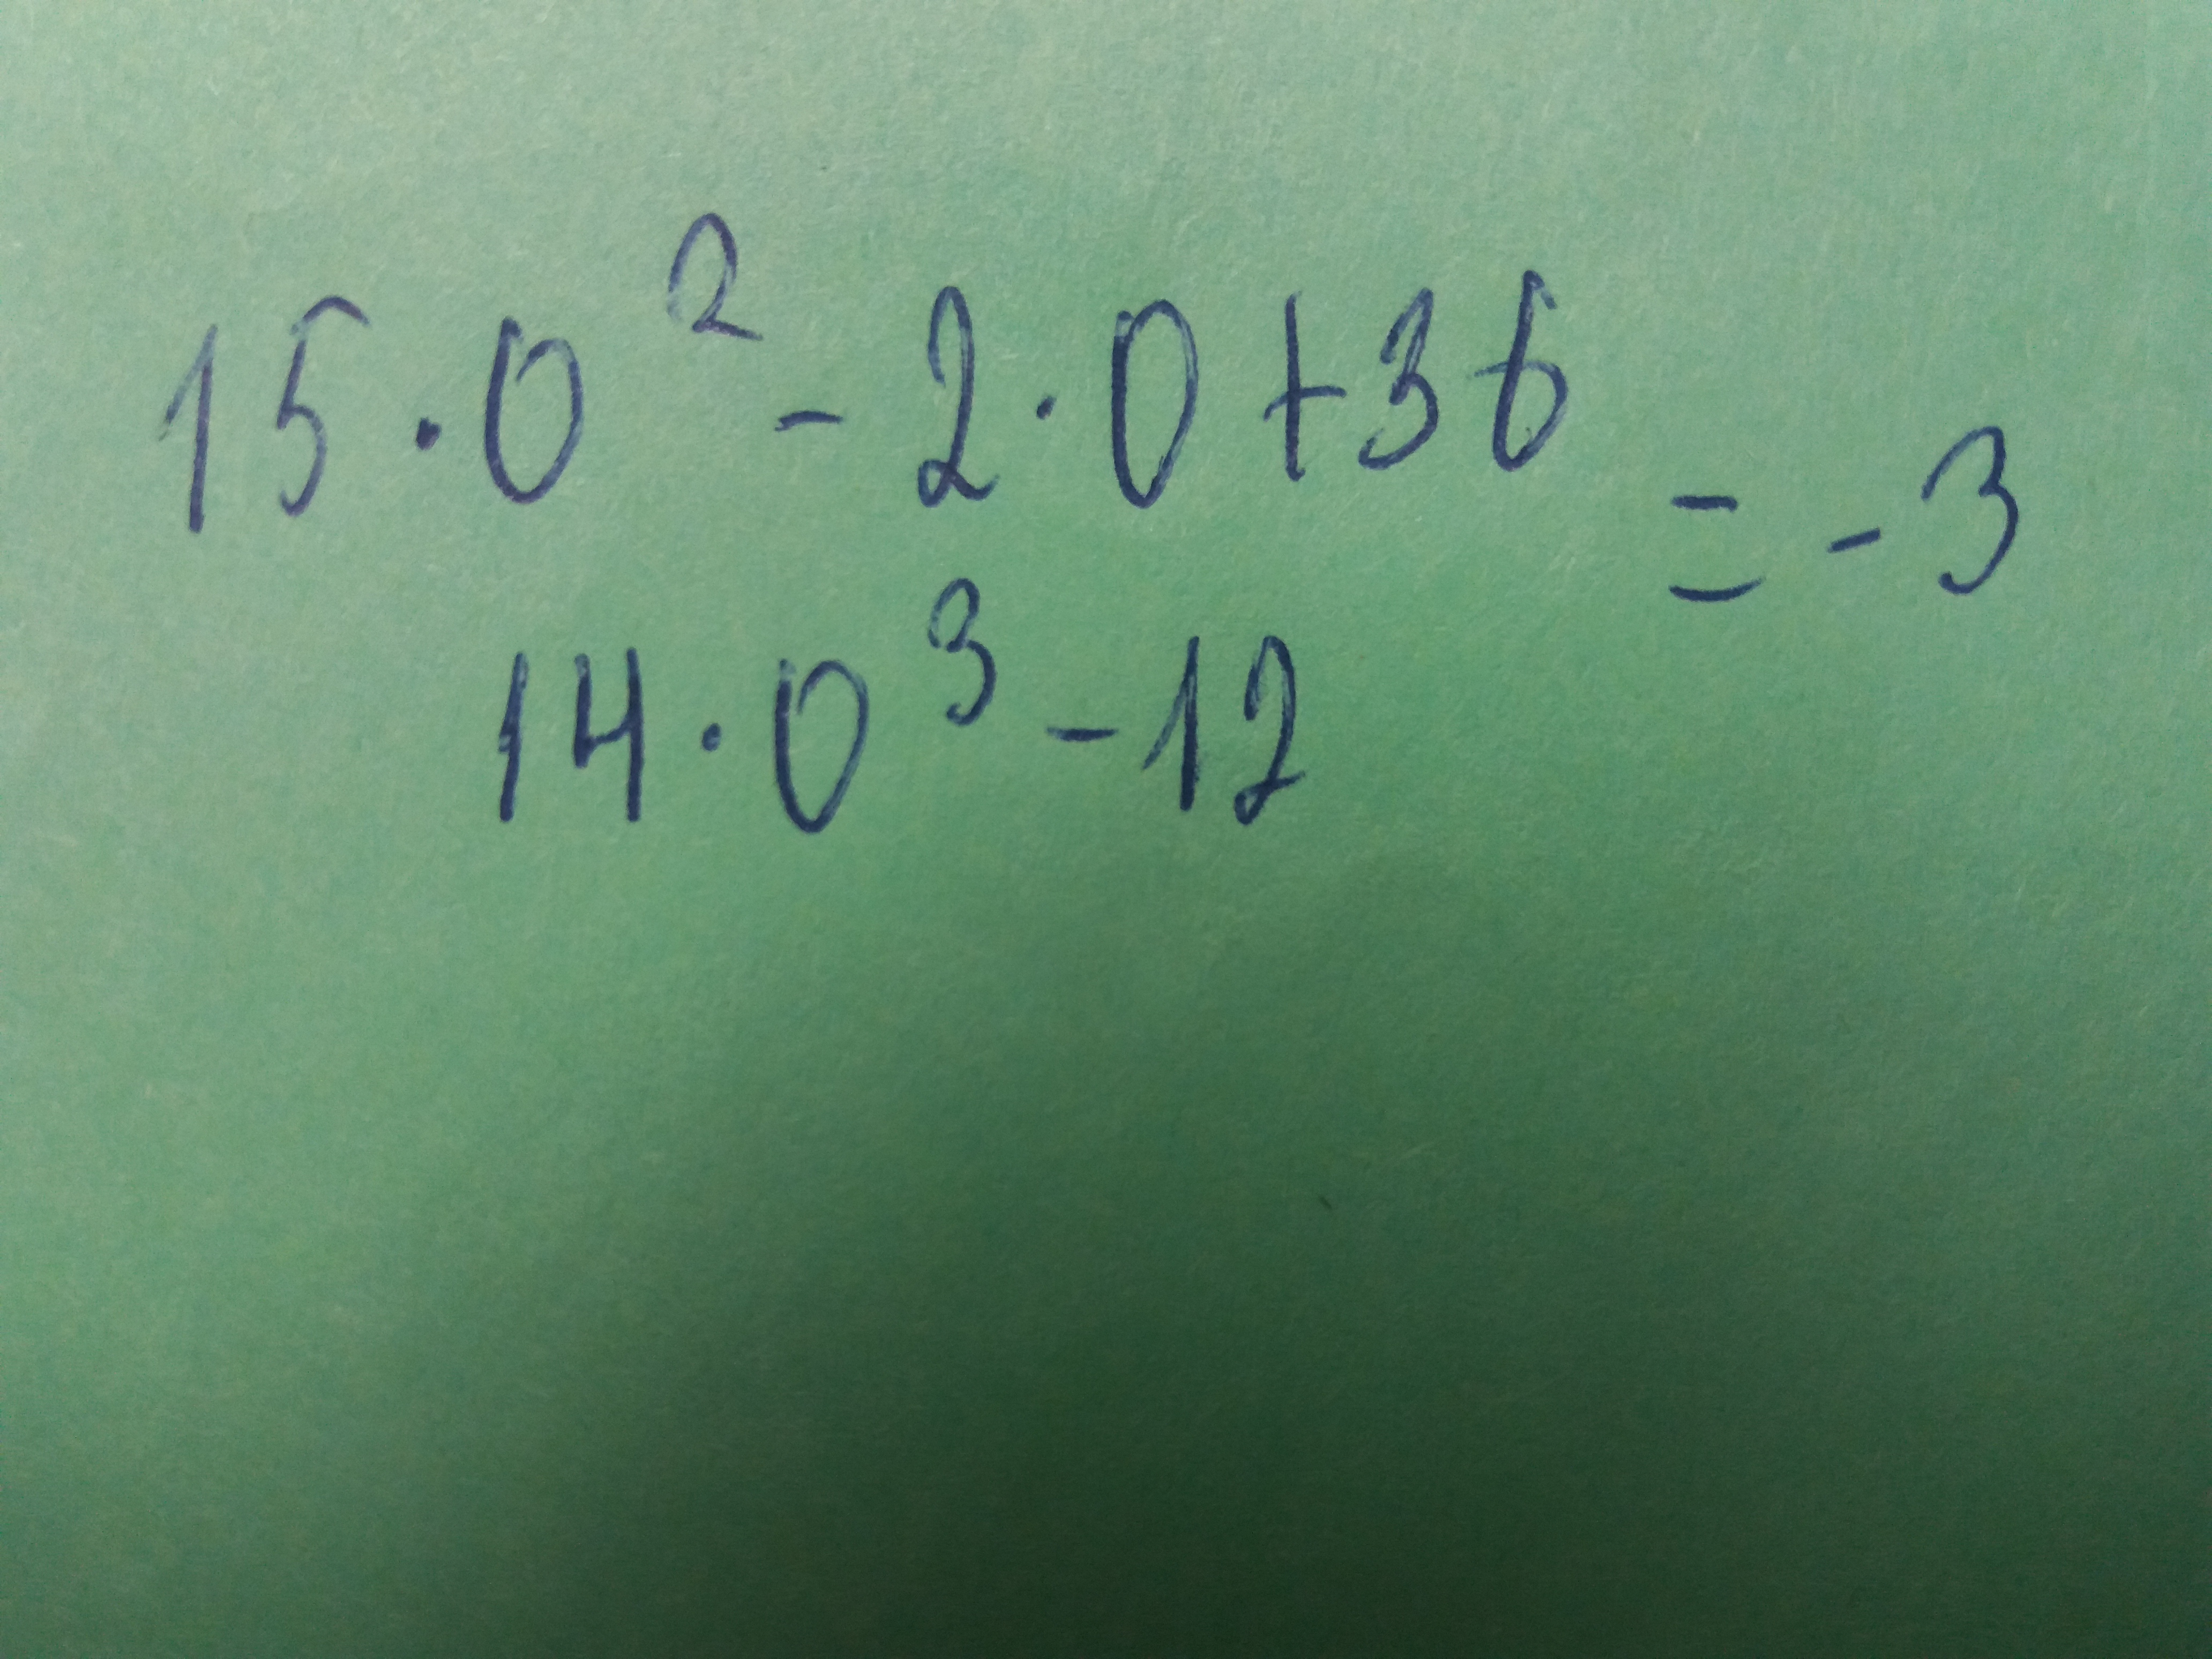 15·0² - 2·0+36
= -3
14·0³ - 12